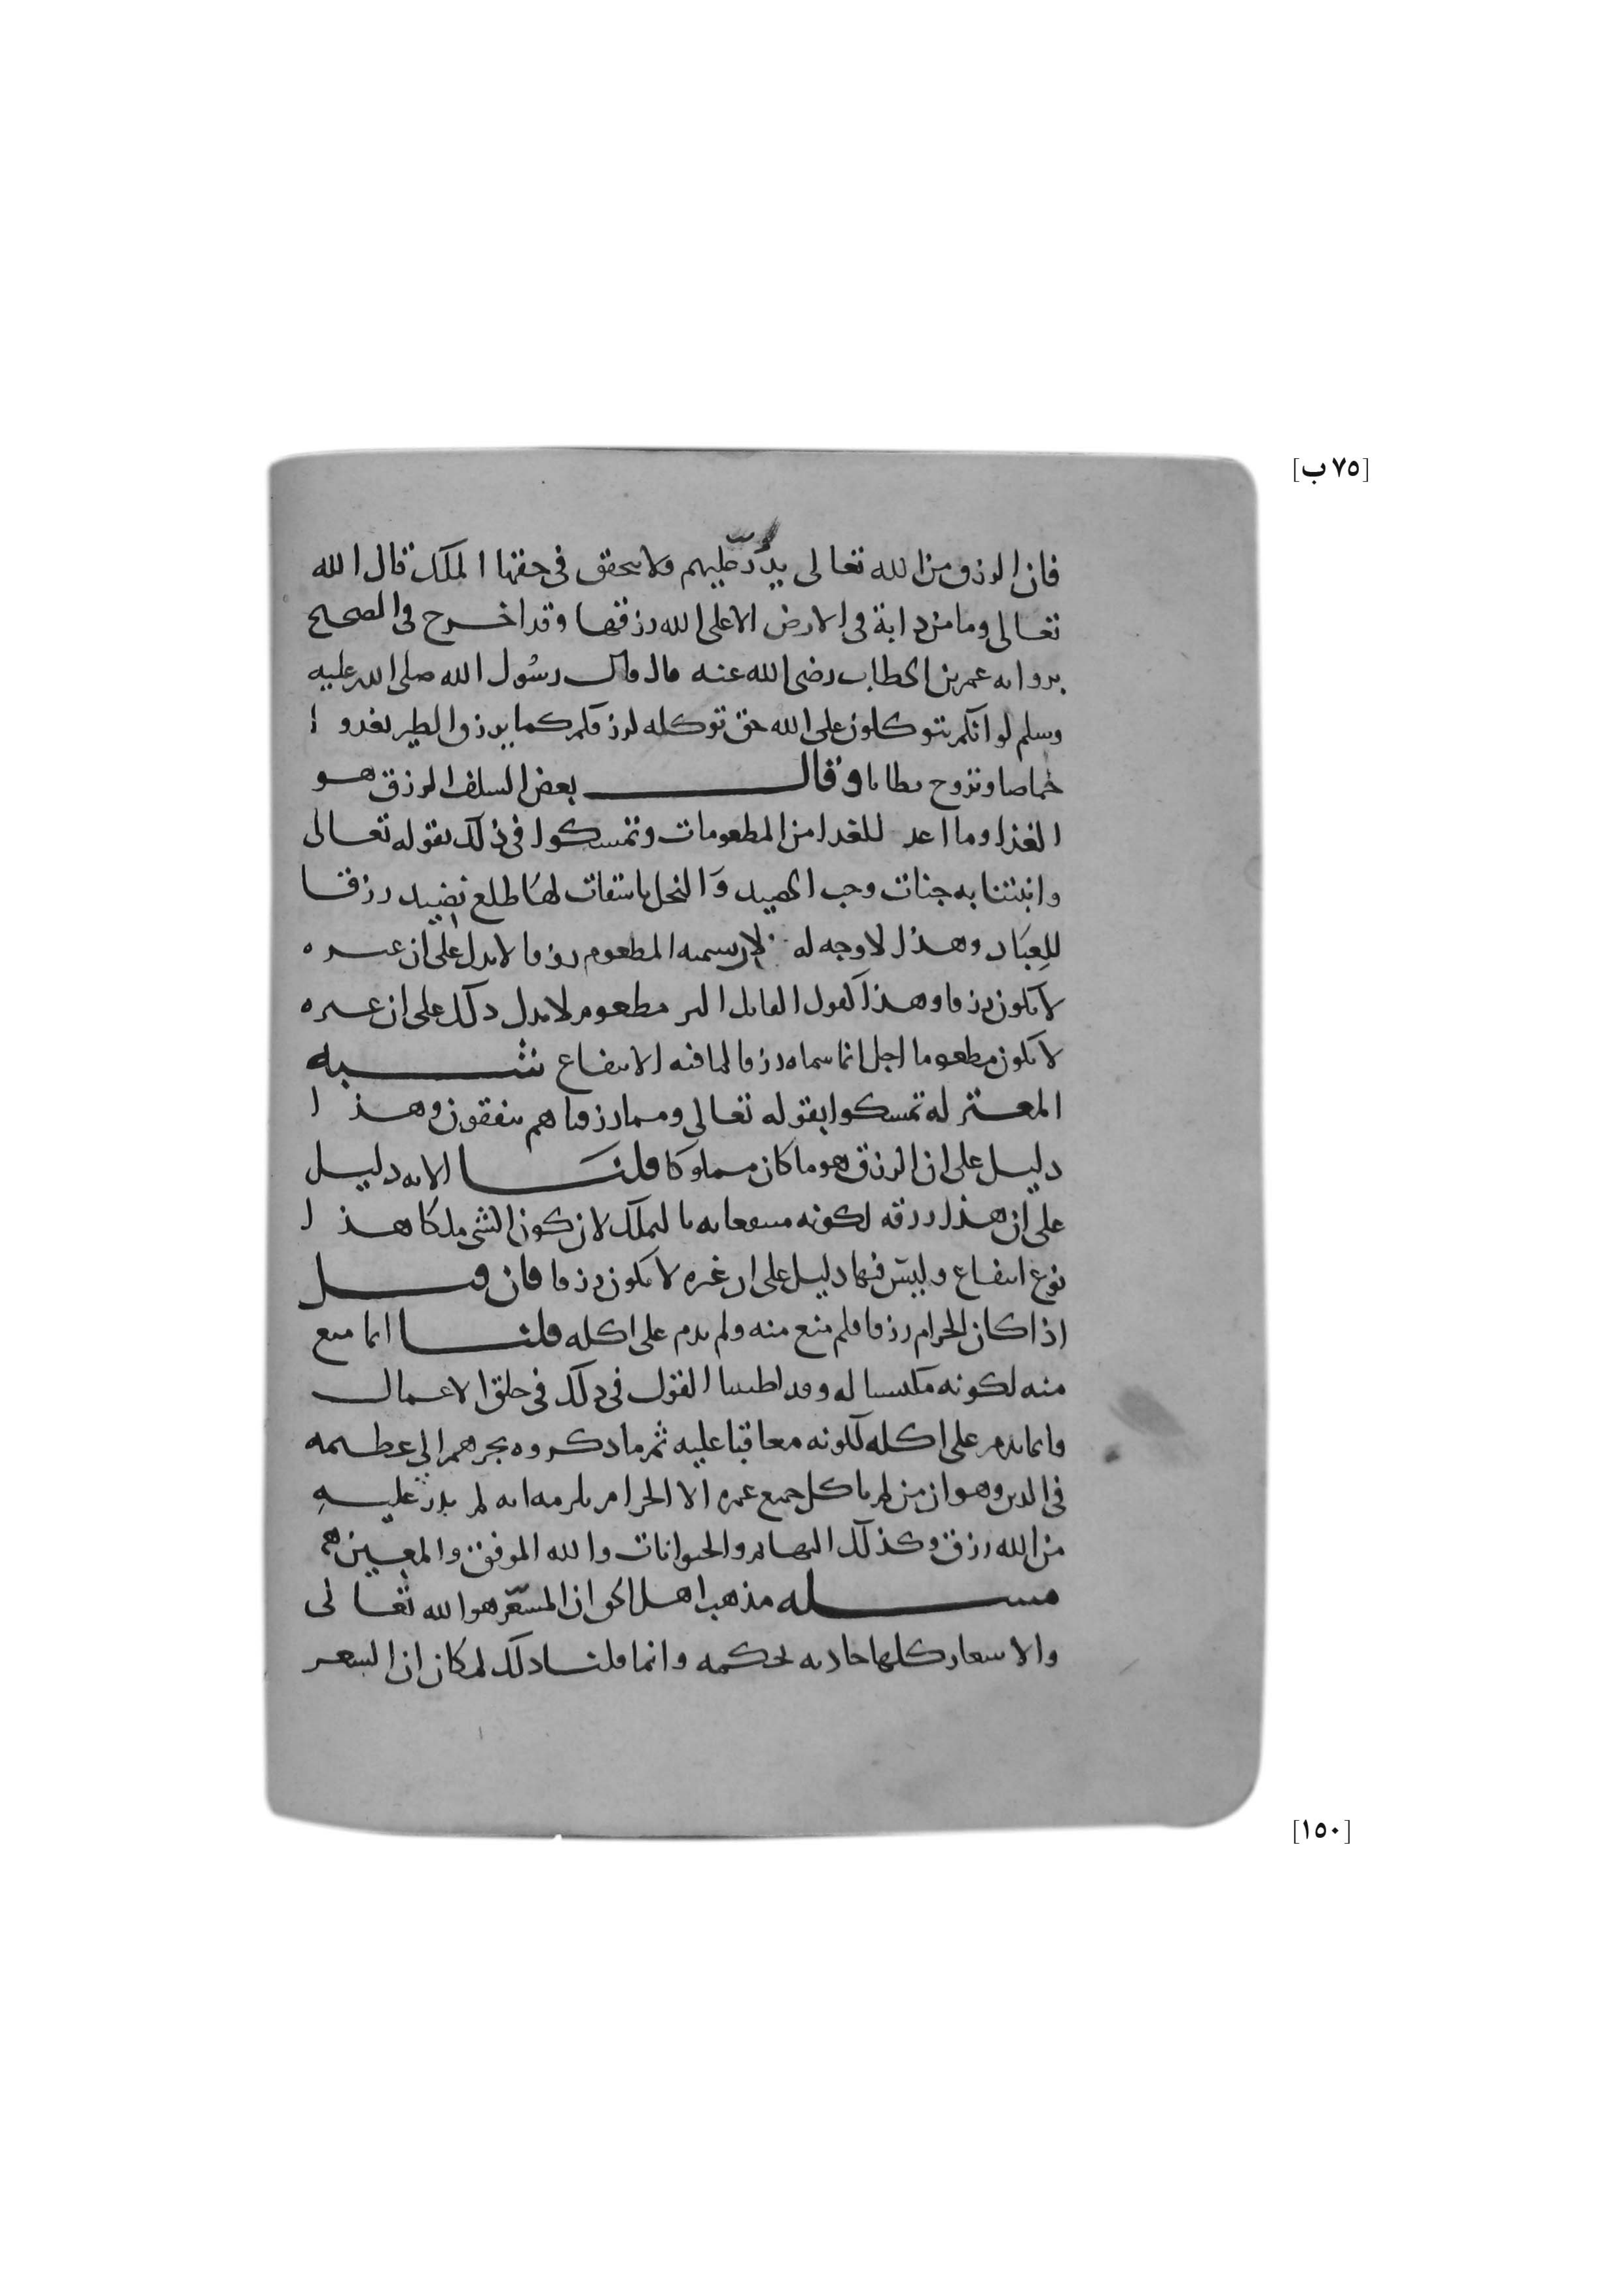 [٧٥ ب]
فان الرزق من الله تعالى يدر عليهم ولا يتحقق في حقها الملك قال الله
تعالى وما من دابة في الارض الا على الله رزقها وقد اخرج في الصحيح
برواية عمر بن الخطاب رضي الله عنه قال قال رسول الله صلى الله عليه
وسلم لو انكم تتوكلون على الله حق توكله لرزقكم كما يرزق الطير تغدوا
خماصا وتروح بطانا وقال بعض السلف الرزق هو
الغذا وما اعد للغدا من المطعومات وتمسكوا في ذلك بقوله تعالى
وانبتنا به جنات وحب الحصيد والنخل باسقات لها طلع نضيد رزقا
للعباد وهذا لا وجه له لان تسميه المطعوم رزقا لا يدل على ان غيره
لا يكون رزقا وهذا كقول القايل البر مطعوم لا يدل ذلك على ان غيره
لا يكون مطعوما اجل انما سماه رزقا لما فيه الانتفاع شبه
المعتزله تمسكوا بقوله تعالى ومما رزقناهم ينفقون وهذا
دليل على ان الرزق هو ما كان مملوكا قلنا الايه دليل
على ان هذا رزقه لكونه منتفعا به بالتملك لان كون الشي ملكا هذا
نوع انتفاع وليس فيها دليل على ان غيره لا يكون رزقا فان قيل
اذا كان الحرام رزقا فلم منع منه ولم يذم على اكله قلنا انما منع
منه لكونه مكتسبا له وقد اطنبنا القول في ذلك في خلق الاعمال
وانما يذم على اكله لكونه معاقبا عليه ثم ما ذكروه يجرهم الى عظيمه
في الدين وهو ان من لم ياكل جميع عمره الا الحرام يلزمه انه لم يدر عليه
من الله رزق وكذلك البهايم والحيوانات والله الموفق والمعين
مسله مذهب اهل الحق ان المسعر هو الله تعالى
والاسعار كلها جاريه بحكمه وانما قلنا ذلك لمكان ان السعر
[١٥٠]